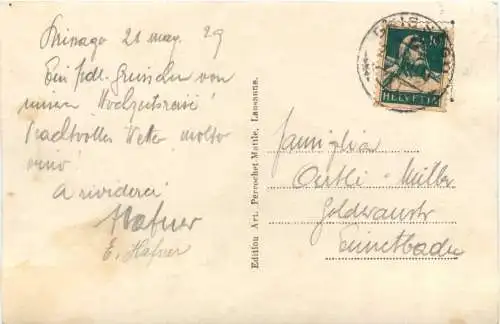 Brissago 21 mag. 29
Ein frdl. Grüsschen von
unserer Hochzeitsreise!
Prachtvolles Wetter molto
vino!
A rividerci
Hafner
E. Hafner
Edition Art. Perrochet-Matile, Lausanne.
HELVETIA
Famiglia
Oertli-Müller